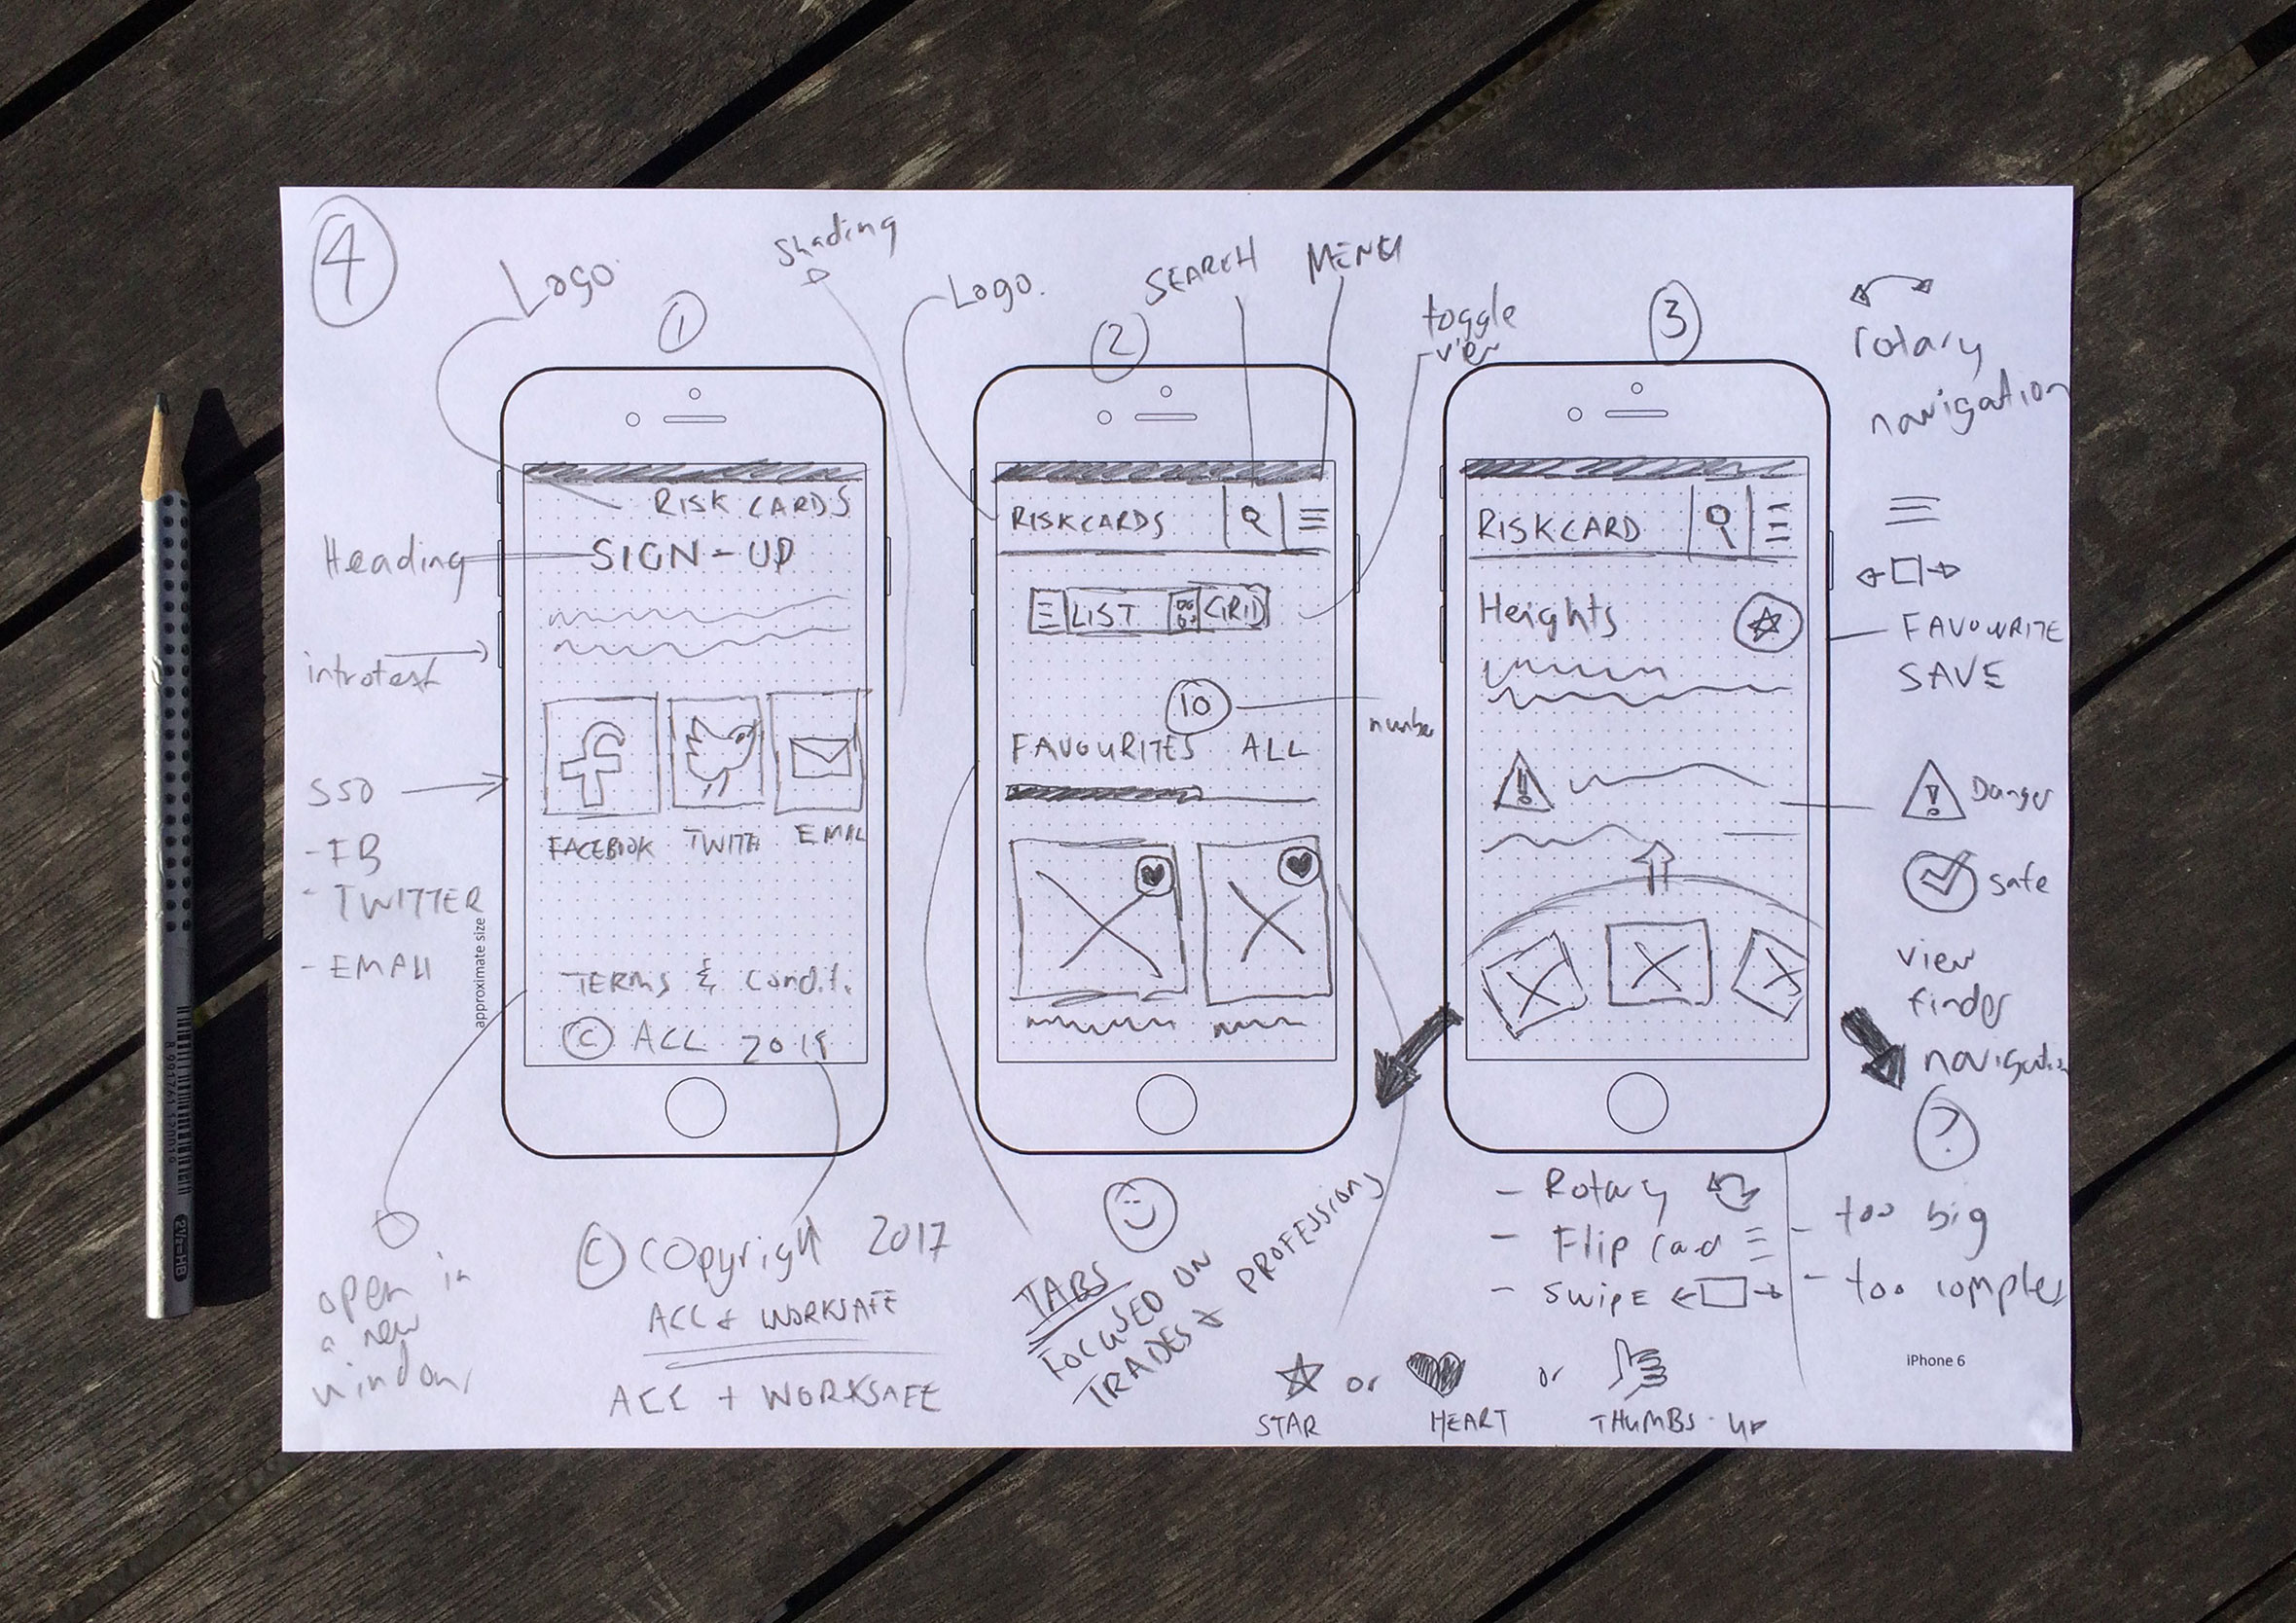 4
Logo
Shading
Logo.
SEARCH
MENU
toggle
view
1
2
3
rotary
navigation
RISK CARDS
SIGN-UP
Heading
introtext
FACEBOOK
EMAIL
SSO
- FB
- TWITTER
- EMAIL
approximate size
TERMS & Condit.
© ACC
open in
a new
window
© Copyright 2017
ACC & WORKSAFE
ACC + WORKSAFE
RISKCARDS
LIST GRID
10
number
FAVOURITES ALL
TABS
FOCUSED ON
TRADES & PROFESSIONS
RISKCARD
Heights
FAVOURITE
SAVE
! Danger
safe
view
finder
navigation
?
- Rotary
- Flip card
- SWIPE
- too big
- too complex
iPhone 6
or or
STAR HEART THUMBS-UP
8 991761 120010
2½=HB